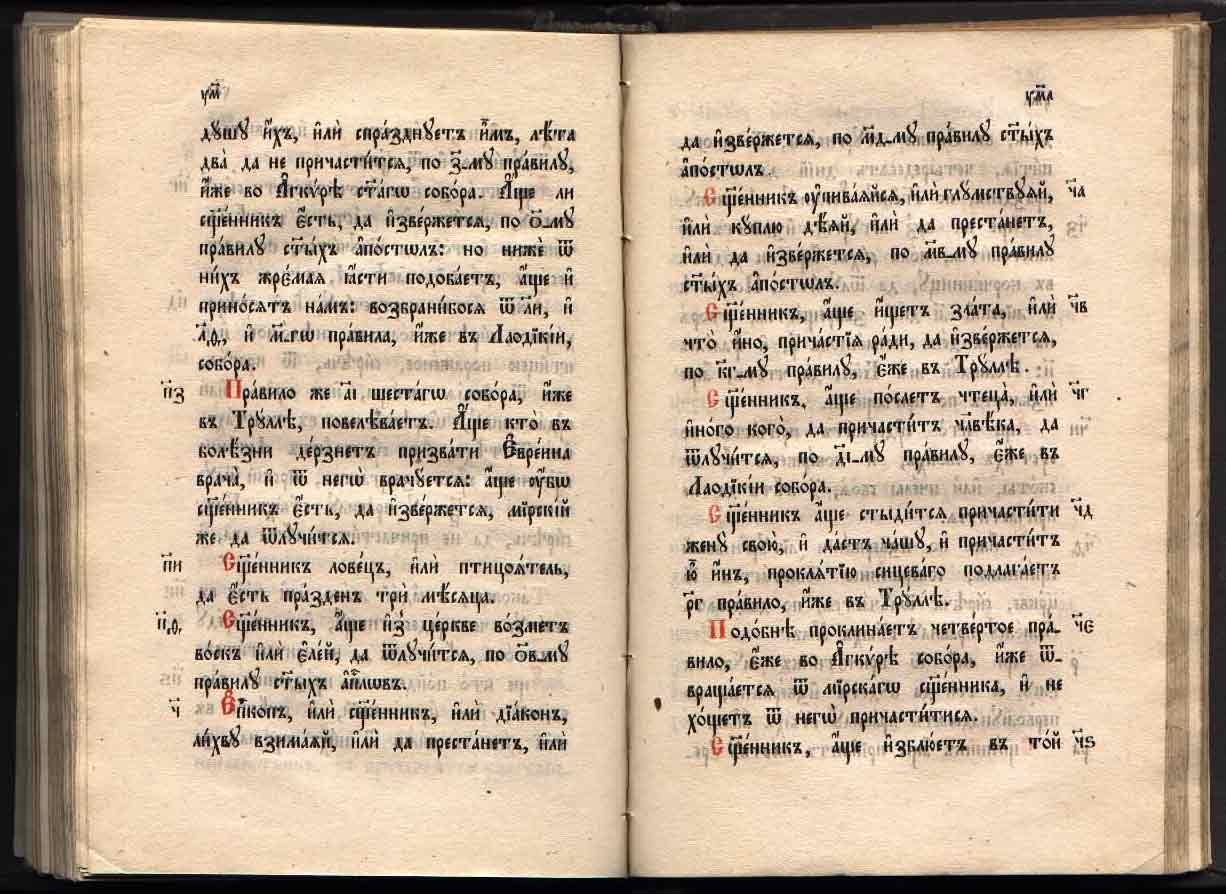 ум҃
дꙋшꙋ и҆́хъ, и҆лѝ спра́зднꙋетъ и҆̀мъ, лѣ́та
два̀ да не причасти́тсѧ, по з҃_мꙋ пра́вилꙋ,
и҆́же во А҆гкѵ́рѣ ст҃а́гѡ собо́ра. А҆́ще ли
сщ҃е́нникъ є҆́сть, да и҆зве́ржетсѧ, по о҃_мꙋ
пра́вилꙋ ст҃ы́хъ а҆по́столъ: но нижѐ ѿ
ни́хъ жре́маѧ ꙗ҆́сти подоба́етъ, а҆́ще и҆
прино́сѧтъ на́мъ: возбрани́босѧ ѿ л҃и, и҆
л҃ѳ, и҆ м҃_гѡ пра́вила, и҆́же въ Лаоді̑кі́и,
собо́ра.
п҃з Пра́вило же а҃і шеста́гѡ собо́ра, и҆́же
въ Трꙋ́ллѣ, повелѣва́етъ. А҆́ще кто̀ въ
болѣ́зни де́рзнетъ призва́ти Е҆вре́ина
врача̀, и҆ ѿ негѡ̀ врачꙋ́етсѧ: а҆́ще ᲂу҆́бѡ
сщ҃е́нникъ є҆́сть, да и҆зве́ржетсѧ, мірскі́й
же да ѿлꙋчи́тсѧ.
п҃и Сщ҃е́нникъ лове́цъ, и҆лѝ птицоѧ́тель,
да є҆́сть пра́зденъ трѝ мѣ́сѧца.
п҃ѳ Сщ҃е́нникъ, а҆́ще и҆з̾ це́ркве во́зметъ
во́скъ и҆лѝ є҆ле́й, да ѿлꙋчи́тсѧ, по о҃в_мꙋ
пра́вилꙋ ст҃ы́хъ а҆п҃лѡвъ.
ч҃ Е҆п҃копъ, и҆лѝ сщ҃е́нникъ, и҆лѝ дїа́конъ,
ли́хвꙋ взима́ѧй, и҆лѝ да преста́нетъ, и҆лѝ
ум҃а
да и҆зве́ржетсѧ, по м҃д_мꙋ пра́вилꙋ ст҃ы́хъ
а҆по́столъ.
Сщ҃е́нникъ ᲂу҆пива́ѧйсѧ, и҆лѝ глꙋмствꙋѧй, ч҃а
и҆лѝ кꙋплю дѣ́ѧй, и҆лѝ да преста́нетъ,
и҆лѝ да и҆зве́ржетсѧ, по м҃в_мꙋ пра́вилꙋ
ст҃ы́хъ а҆по́столъ.
Сщ҃е́нникъ, а҆́ще и҆́щетъ зла́та, и҆лѝ ч҃в
что̀ и҆́но, прича́стїѧ ра́ди, да и҆зве́ржетсѧ,
по к҃г_мꙋ пра́вилꙋ, є҆́же въ Трꙋ́ллѣ.
Сщ҃е́нникъ, а҆́ще по́слетъ чтеца̀, и҆лѝ ч҃г
и҆но́го кого̀, да причасти́тъ чл҃вѣ́ка, да
ѿлꙋчи́тсѧ, по д҃і_мꙋ пра́вилꙋ, є҆́же въ
Лаоді̑кі́и собо́ра.
Сщ҃е́нникъ а҆́ще стыди́тсѧ причасти́ти ч҃д
женꙋ̀ свою̀, и҆ да́стъ ча́шꙋ, и҆ причасти́тъ
ю҆̀ и҆́нъ, проклѧ́тїю си́цеваго подлага́етъ
р҃г пра́вило, и҆́же въ Трꙋ́ллѣ.
Подо́бнѣ проклина́етъ четве́ртое пра́- ч҃е
вило, є҆́же во А҆гкѵ́рѣ собо́ра, и҆́же ѿ-
враща́етсѧ ѿ мірска́гѡ сщ҃е́нника, и҆ не
хо́щетъ ѿ негѡ̀ причасти́тисѧ.
Сщ҃е́нникъ, а҆́ще и҆зблюе́тъ въ то́й ч҃ѕ